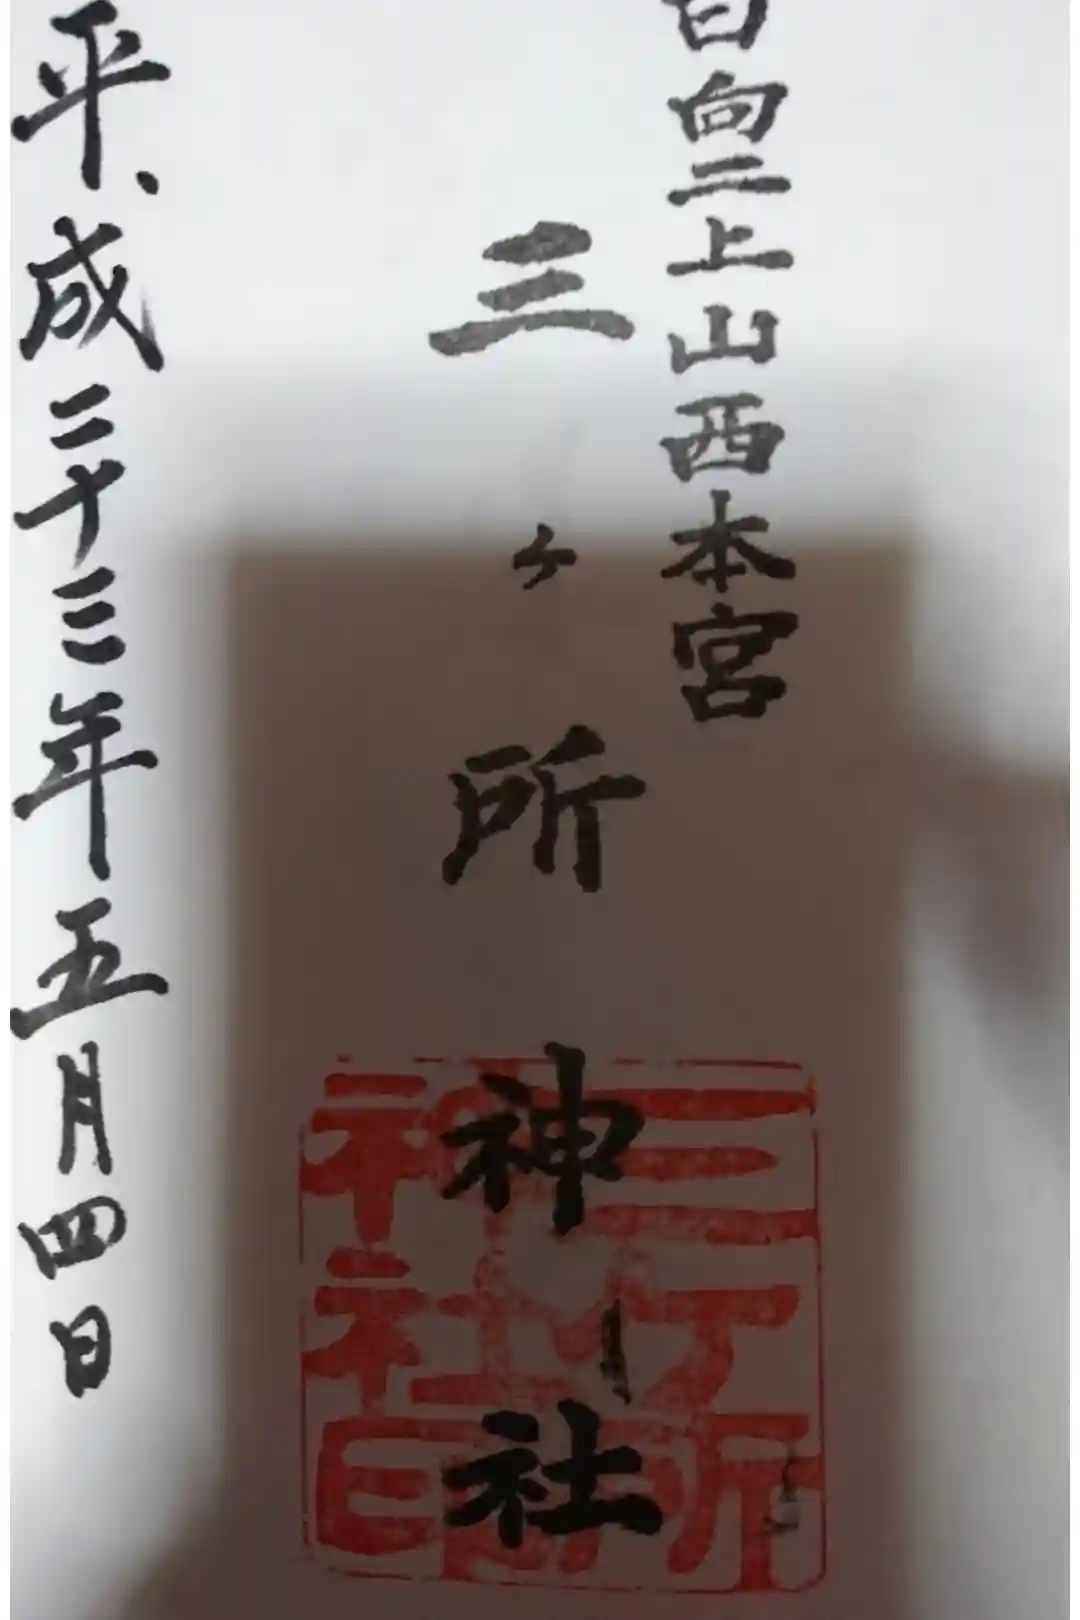 日向二上山西本宮
三ヶ所神社
平成二十三年五月四日
三ヶ所
神社印